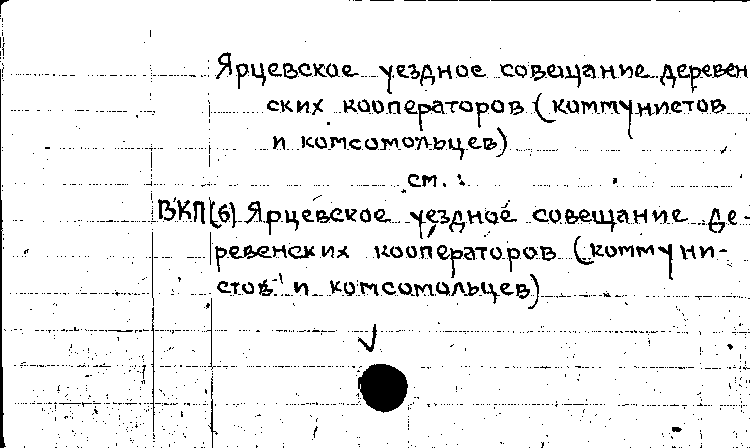 Ярцевское уездное совещание деревен
ских кооператоров (коммунистов
и комсомольцев)
см.:
ВКП(б) Ярцевское уездное совещание де-
ревенских кооператоров (коммуни-
стов и комсомольцев)